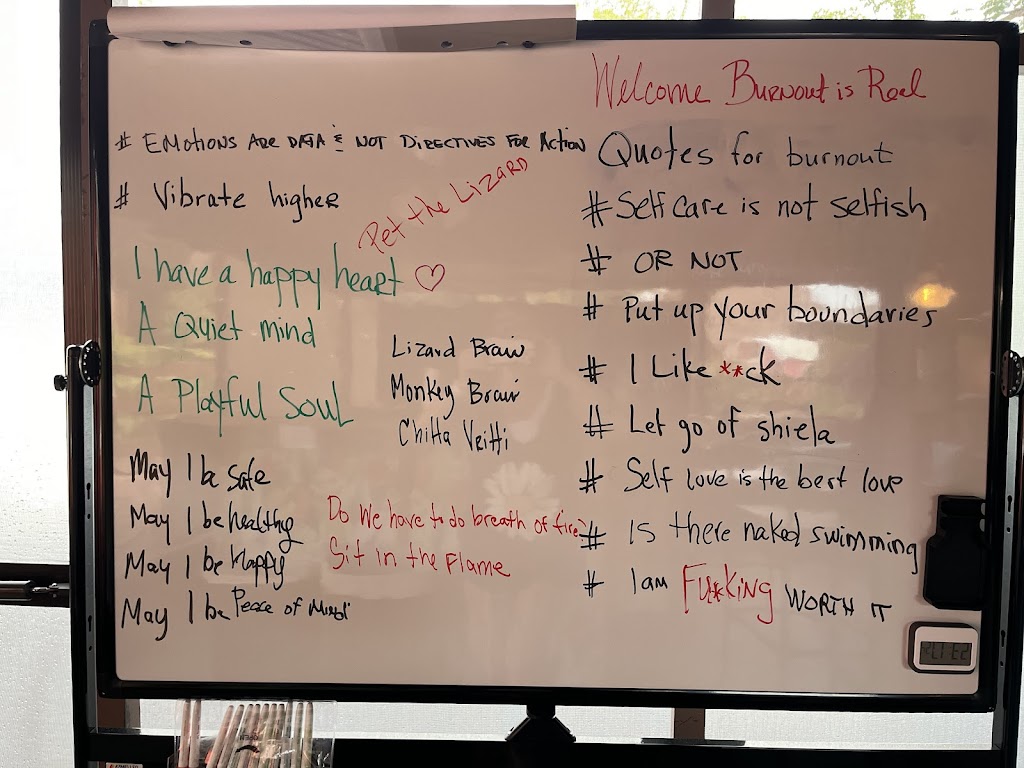 Welcome Burnout is Real
# EMotions ARE DATA & NOT DIRECTIVES FOR Action
# Vibrate higher
Pet the Lizard
I have a happy heart ♡
A Quiet mind
A Playful Soul
Lizard Brain
Monkey Brain
Chitta Vritti
May I be safe
May I be healthy
May I be Happy
May I be Peace of Mind
Do We have to do breath of fire?
Sit in the Flame
Quotes for burnout
# Self care is not selfish
# OR NOT
# Put up your boundaries
# I Like **ck
# Let go of shiela
# Self love is the best love
# Is there naked swimming
# I am Fu*king WORTH IT